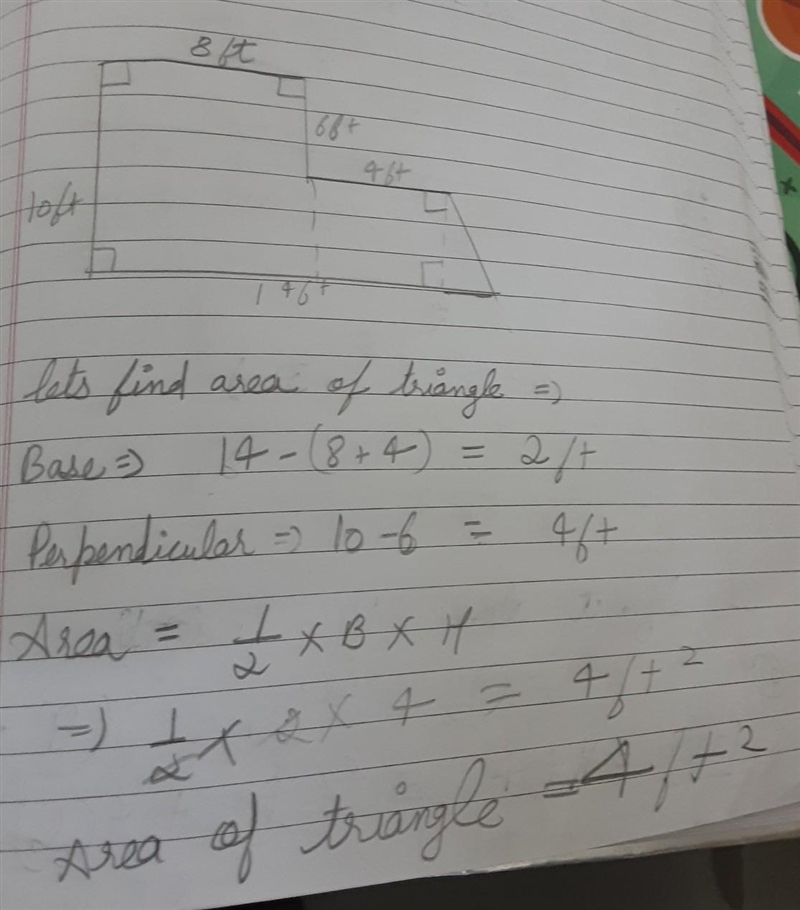 8 ft
6ft
4ft
10ft
14ft
lets find area of triangle =>
Base => 14 - (8 + 4) = 2 ft
Perpendicular => 10 - 6 = 4ft
Area = 1/2 × B × H
=> 1/2 × 2 × 4 = 4ft²
Area of triangle = 4 ft²